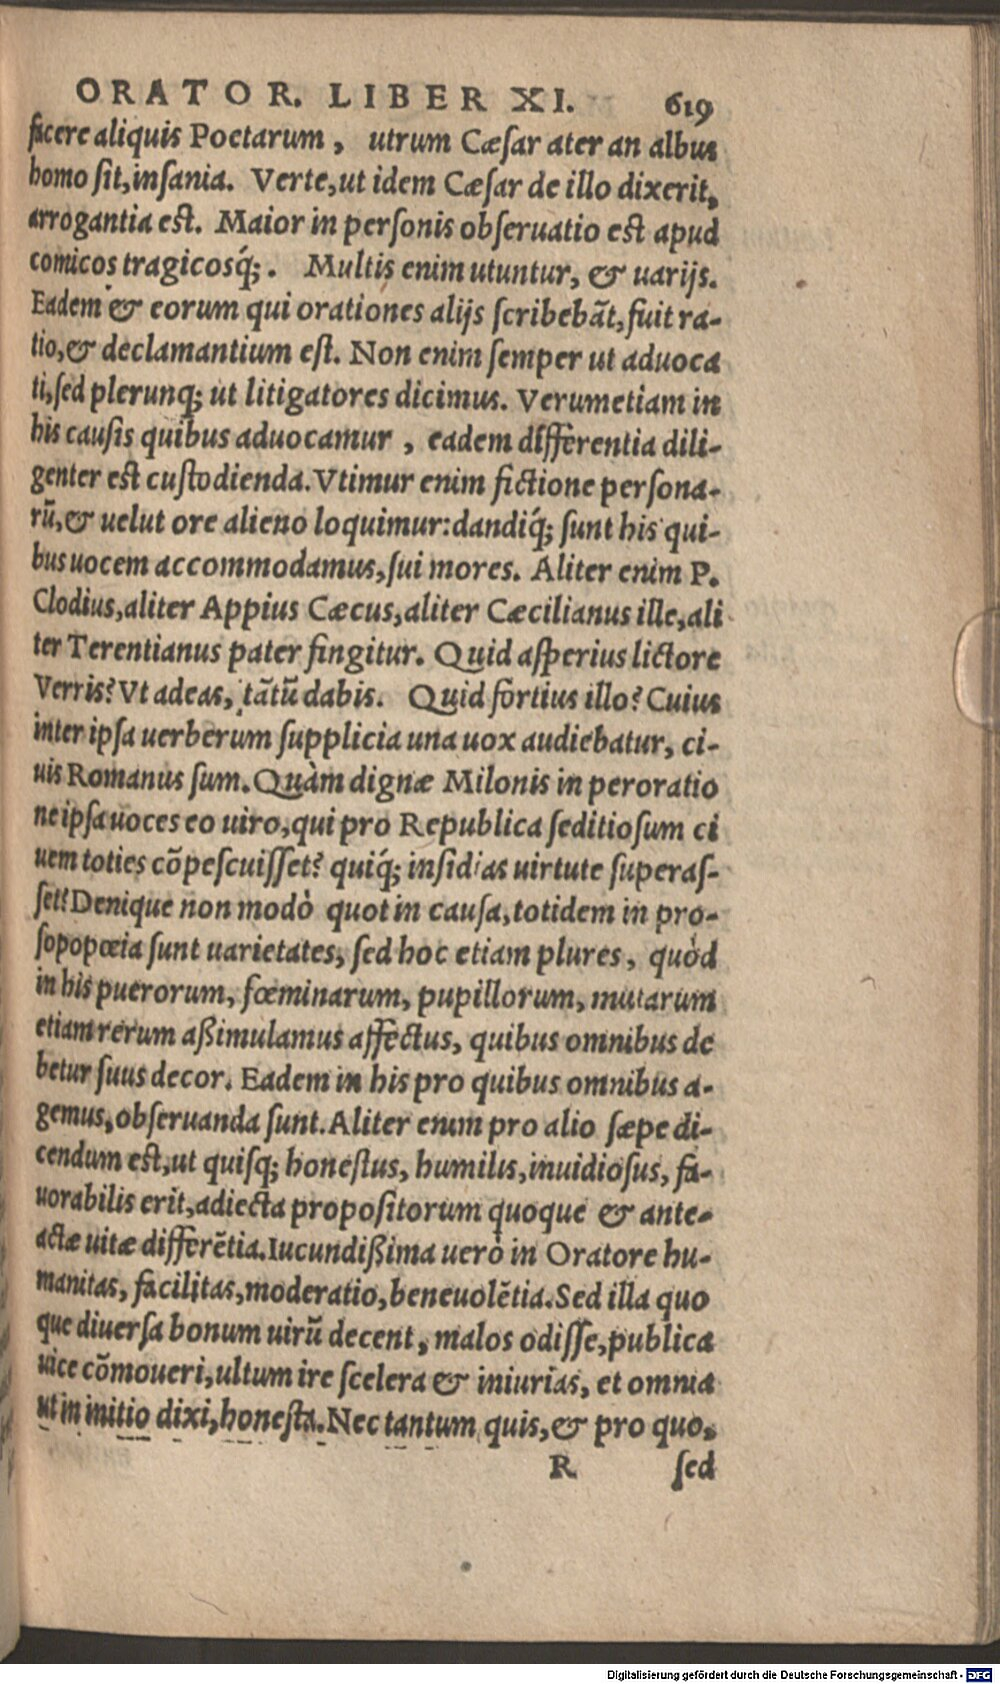 ORATOR. LIBER XI. 619
facere aliquis Poetarum, utrum Cæsar ater an albus
homo sit, insania. Verte, ut idem Cæsar de illo dixerit,
arrogantia est. Maior in personis obseruatio est apud
comicos tragicosq́;. Multis enim utuntur, & uarijs.
Eadem & eorum qui orationes alijs scribebãt, fuit ra-
tio, & declamantium est. Non enim semper ut aduoca
ti, sed plerunq; ut litigatores dicimus. Verumetiam in
his causis quibus aduocamur, eadem differentia dili-
genter est custodienda. Vtimur enim fictione persona-
rũ, & uelut ore alieno loquimur: dandiq́; sunt his qui-
bus uocem accommodamus, sui mores. Aliter enim P.
Clodius, aliter Appius Cæcus, aliter Cæcilianus ille, ali
ter Terentianus pater fingitur. Quid asperius lictore
Verris? Vt adeas, tãtũ dabis. Quid fortius illo? Cuius
inter ipsa uerberum supplicia una uox audiebatur, ci-
uis Romanus sum. Quàm dignæ Milonis in peroratio
ne ipsa uoces eo uiro, qui pro Republica seditiosum ci
uem toties cõpescuisset? quiq́; insidias uirtute superas-
set? Denique non modò quot in causa, totidem in pro-
sopopœia sunt uarietates, sed hoc etiam plures, quòd
in his puerorum, fœminarum, pupillorum, mutarum
etiam rerum aßimulamus affectus, quibus omnibus de
betur suus decor. Eadem in his pro quibus omnibus a-
gemus, obseruanda sunt. Aliter enim pro alio sæpe di-
cendum est, ut quisq; honestus, humilis, inuidiosus, fa-
uorabilis erit, adiecta propositorum quoque & ante-
actæ uitæ differẽtia. Iucundißima uerò in Oratore hu-
manitas, facilitas, moderatio, beneuolẽtia. Sed illa quo
que diuersa bonum uirũ decent, malos odisse, publica
uice cõmoueri, ultum ire scelera & iniurias, et omnia
ut in initio dixi, honesta. Nec tantum quis, & pro quo,
R sed
Digitalisierung gefördert durch die Deutsche Forschungsgemeinschaft - DFG